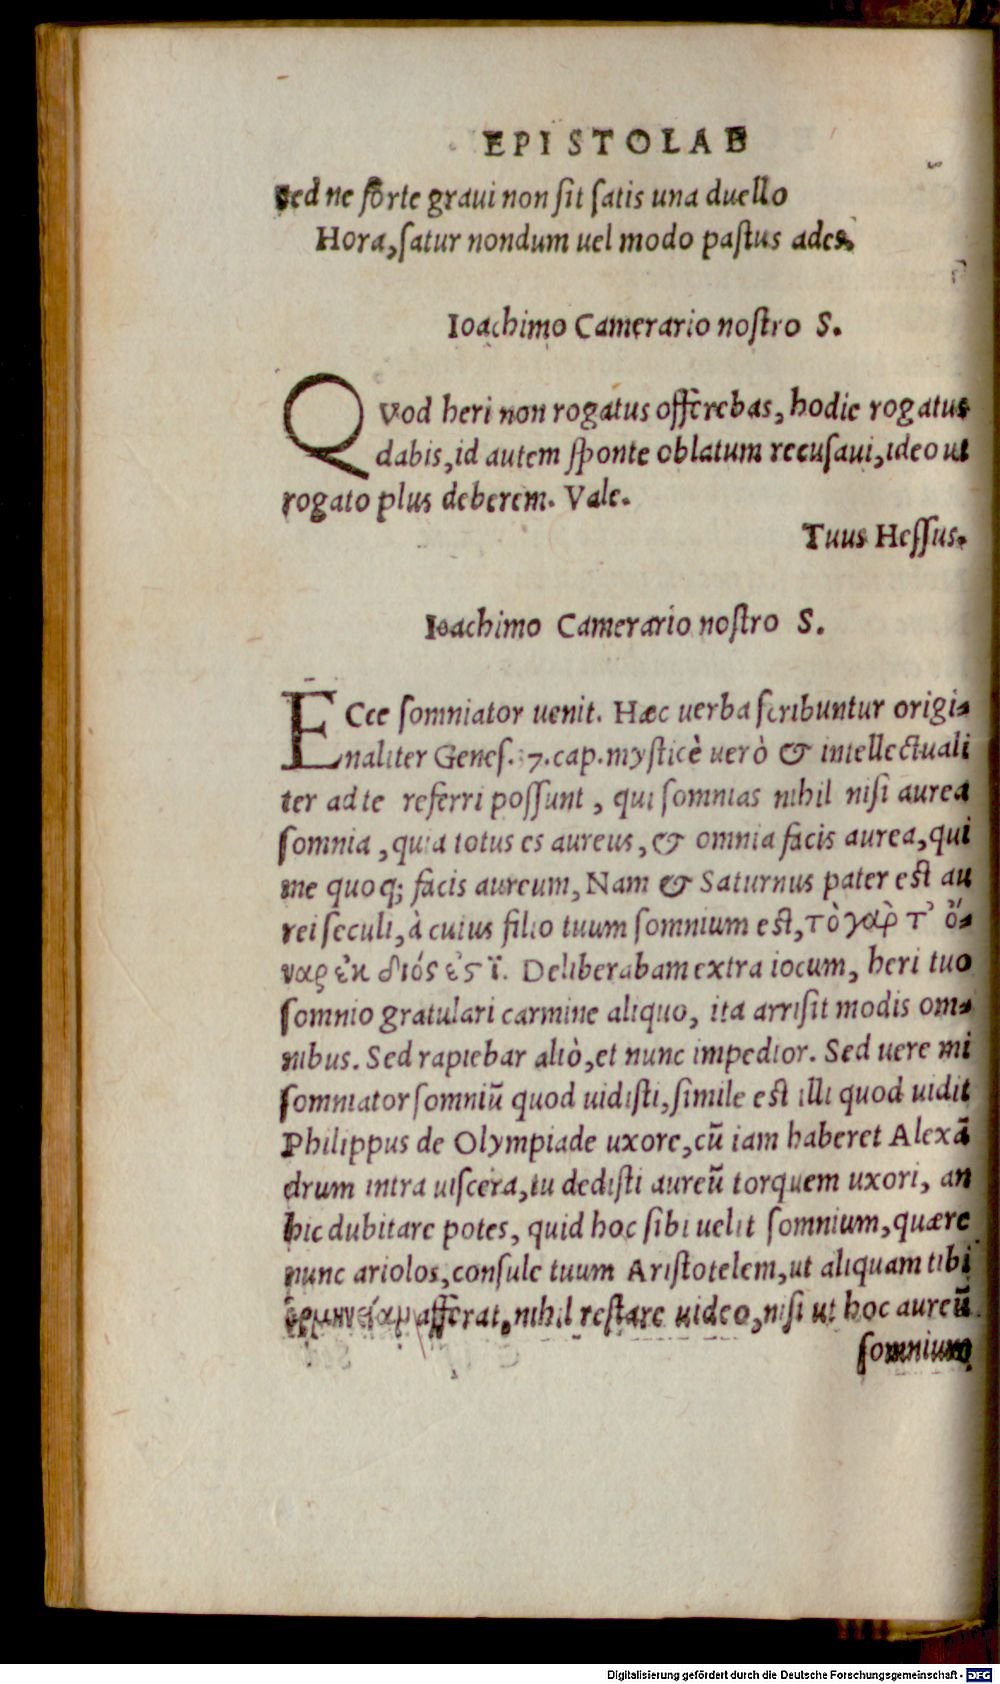 EPISTOLAE
Sed ne forte graui non sit satis una duello
Hora, satur nondum uel modo pastus ades.
Ioachimo Camerario nostro S.
QVod heri non rogatus offerebas, hodie rogatus
dabis, id autem sponte oblatum recusaui, ideo ut
rogato plus deberem. Vale.
Tuus Hessus.
Ioachimo Camerario nostro S.
ECce somniator uenit. Hæc uerba scribuntur origi-
naliter Genes. 37. cap. mysticè uerò & intellectuali
ter ad te referri possunt, qui somnias nihil nisi aurea
somnia, quia totus es aureus, & omnia facis aurea, qui
me quoq; facis aureum, Nam & Saturnus pater est au
rei seculi, à cuius filio tuum somnium est, τὸ γαρ̀ τ᾽ ὄ-
ναρ ἐκ διός ἐςῒ. Deliberabam extra iocum, heri tuo
somnio gratulari carmine aliquo, ita arrisit modis om-
nibus. Sed rapiebar aliò, et nunc impedior. Sed uere mi
somniator somniū quod uidisti, simile est illi quod uidit
Philippus de Olympiade uxore, cū iam haberet Alexā
drum intra uiscera, tu dedisti aureū torquem uxori, an
hic dubitare potes, quid hoc sibi uelit somnium, quære
nunc ariolos, consule tuum Aristotelem, ut aliquam tibi
ἑρμηνείαμ afferat, nihil restare uideo, nisi ut hoc aureū
somnium
Digitalisierung gefördert durch die Deutsche Forschungsgemeinschaft - DFG